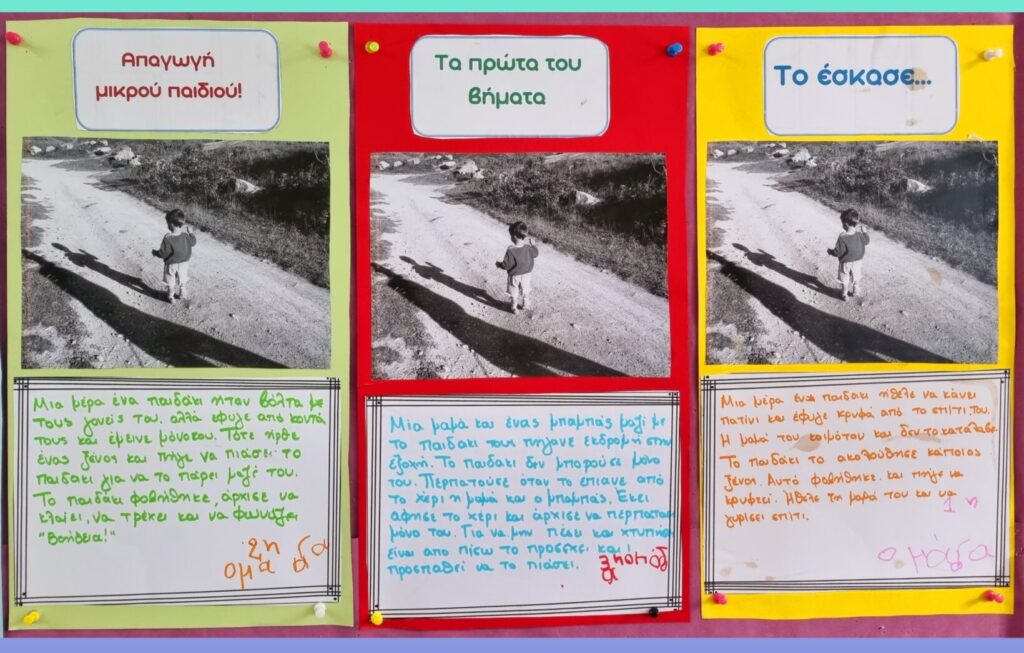 Απαγωγή
μικρού παιδιού!
Μια μέρα ένα παιδάκι ήταν βόλτα με
τους γονείς του, αλλά έφυγε από κοντά
τους και έμεινε μόνο του. Τότε ήρθε
ένας ξένος και πήγε να πιάσει το
παιδάκι για να το πάρει μαζί του.
Το παιδάκι φοβήθηκε, άρχισε να
κλαίει, να τρέχει και να φωνάζει
"Βοήθεια!"
3η
ομάδα
Τα πρώτα του
βήματα
Μια μαμά και ένας μπαμπάς μαζί με
το παιδάκι τους πήγανε εκδρομή στην
εξοχή. Το παιδάκι δεν μπορούσε μόνο
του. Περπατούσε όταν το έπιανε από
το χέρι η μαμά και ο μπαμπάς. Εκεί
άφησε το χέρι και άρχισε να περπατάει
μόνο του. Για να μην πέσει και χτυπήσει
είναι από πίσω το προσέχει και
προσπαθεί να το πιάσει.
Το έσκασε...
Μια μέρα ένα παιδάκι ήθελε να κάνει
πατίνι και έφυγε κρυφά από το σπίτι του.
Η μαμά του κοιμόταν και δεν το κατάλαβε.
Το παιδάκι το ακολούθησε κάποιος
ξένος. Αυτό φοβήθηκε και πήγε να
κρυφτεί. Ήθελε τη μαμά του και να
γυρίσει σπίτι.
1η
ομάδα